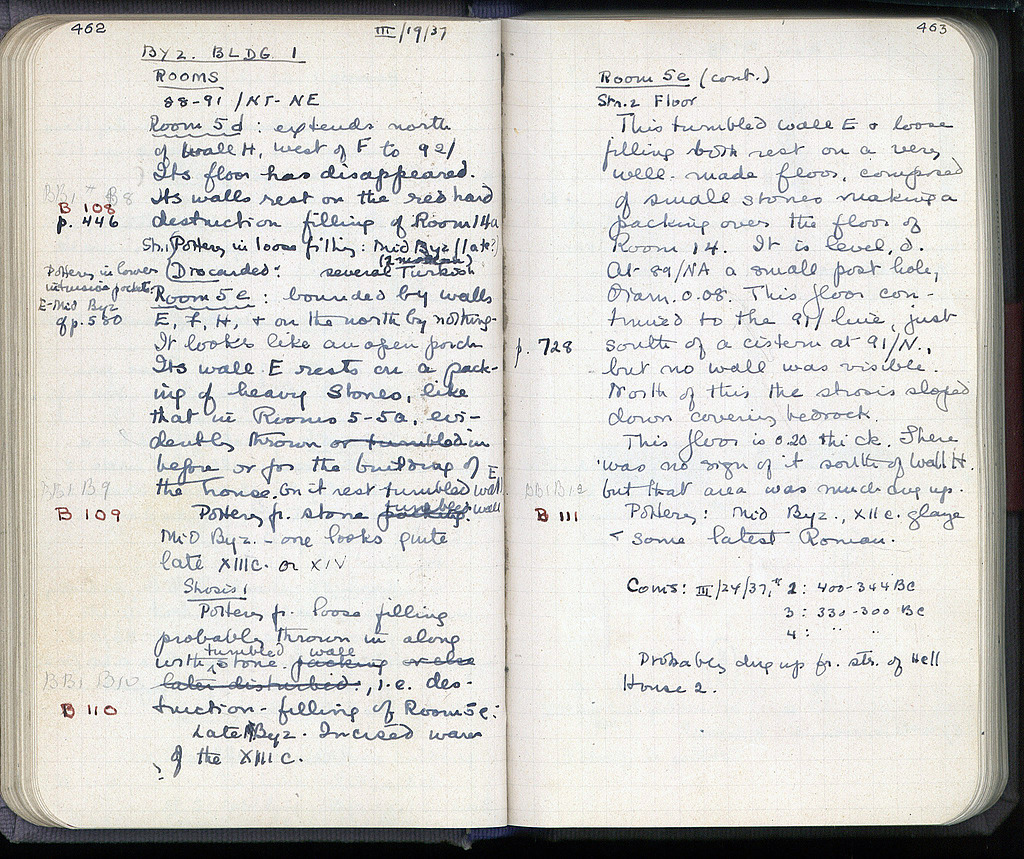 462
III/19/37
BYZ. BLDG 1
ROOMS
88-91/NT-NE
Room 5d: extends north
of wall H, west of F to 92/
Its floor has disappeared.
BB1 B8
Its walls rest on the red hard
B 108
p. 446
destruction filling of Room 14a
Str. 1 Pottery in loose filling: Mid Byz (late?)
Pottery in lower
intrusive pockets:
E-Mid Byz
(Discarded: several Turkish
Room 5e: bounded by walls
E, F, H, + on the north by nothing-
It looks like an open porch
Its wall E rests on a pack-
ing of heavy stones, like
that in Rooms 5-5a, evi-
dently thrown or tumbled in
before or for the building of
the house. On it rest tumbled wall E
BB1 B9
B 109
Pottery fr. stone packing. tumbled wall
Mid Byz. - one looks quite
late XIIIc. or XIV
Strosis 1
Pottery fr. loose filling
probably thrown in along
with tumbled stone wall packing or else
BB1 B10
later disturbed., i.e. des-
B 110
truction-filling of Room 5e:
Late Byz. Incised ware
of the XIII c.
463
Room 5e (cont.)
Str. 2 Floor
This tumbled wall E + loose
filling both rest on a very
well-made floor, composed
of small stones making a
packing over the floor of
Room 14. It is level,
At 89/NA a small post hole,
Diam. 0.08. This floor con-
tinued to the 91/ line, just
p. 728
south of a cistern at 91/N.,
but no wall was visible.
North of this the strosis sloped
down covering bedrock
This floor is 0.20 thick. There
was no sign of it south of wall H.
BB1 B12
but that area was much dug up.
B 111
Pottery: Mid Byz., XII c. glaze
+ some latest Roman.
Coins: III/24/37, # 2: 400-344 BC
3: 330-300 BC
4: " "
Probably dug up fr. str. of Hell
House 2.